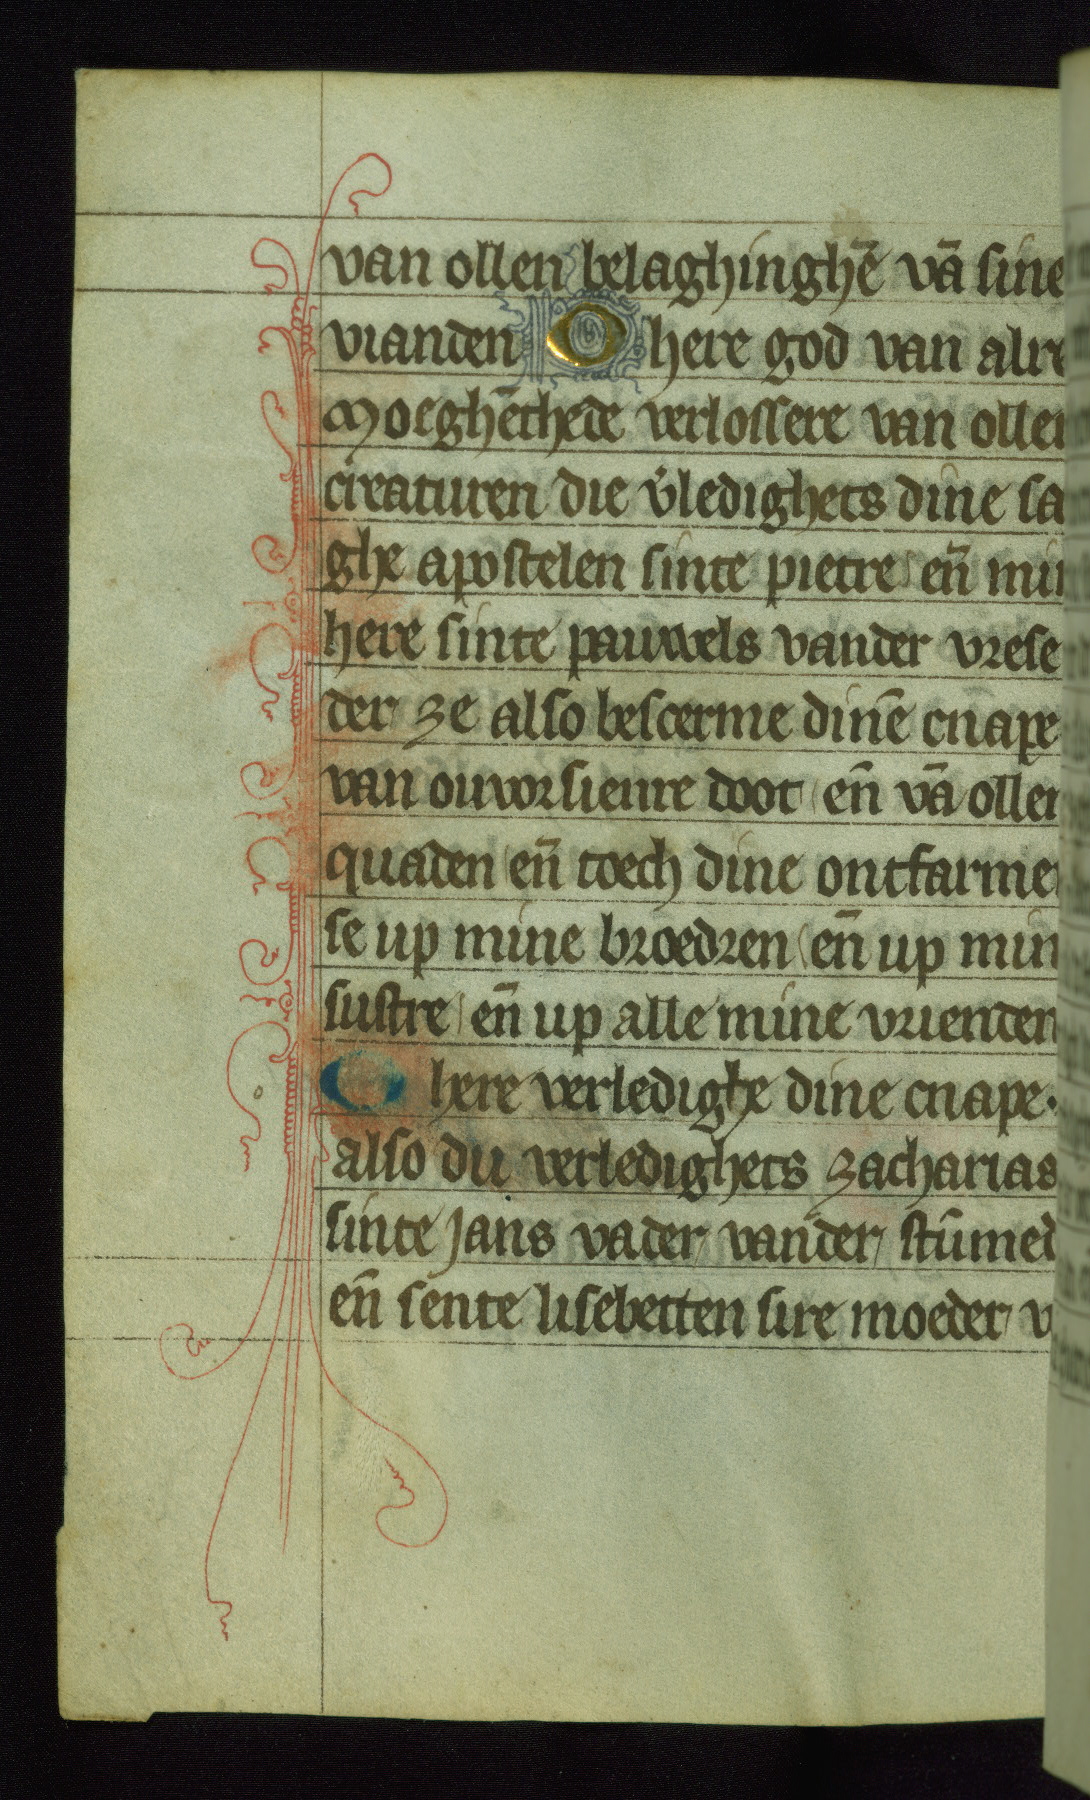 van ollen belaghinghē vā sine
vianden O here god van alre
moeghēthede verlossere van ollen
creaturen die v̓ledighets dine sa
ghe apostelen sinte pietre en̄ min
here sinte pauwels vander vrese
der ze also bescerme dinē cnape
van onvorsienre doot en̄ vā ollen
quaden en̄ toech dine ontfarme
se up mine broedren en̄ up min
sustre en̄ up alle mine vrienden
O here verledighe dine cnape.
also du verledighets zacharias
sinte jans vader vander stūmed
en̄ sente lisebetten sire moeder v